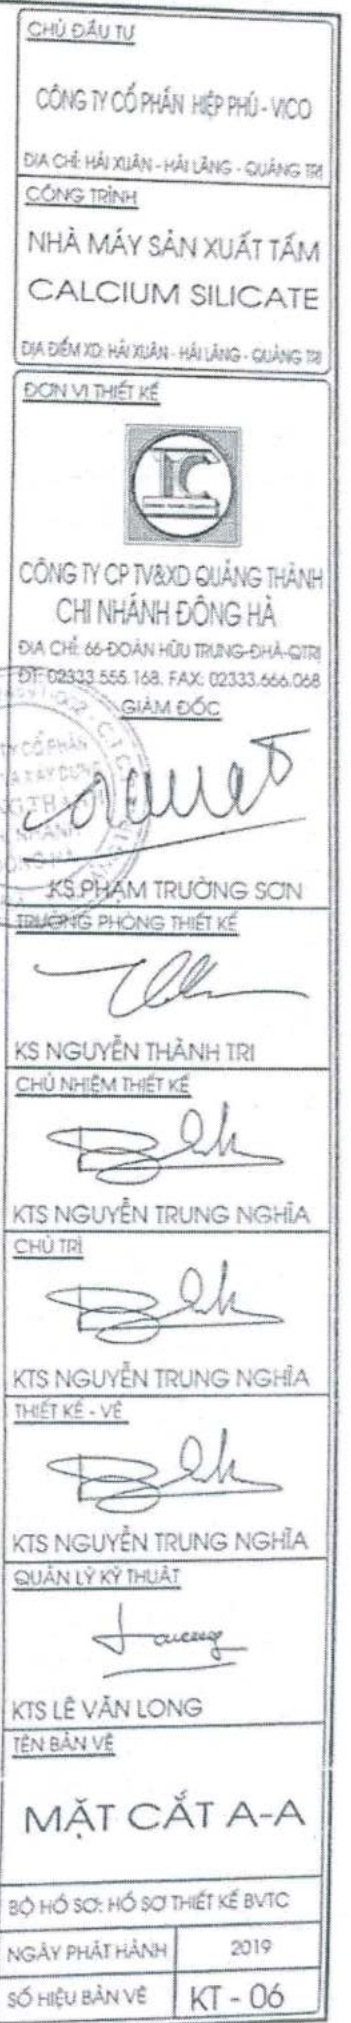 CHỦ ĐẦU TƯ
CÔNG TY CỔ PHẦN HIỆP PHÚ - VICO
ĐỊA CHỈ: HẢI XUÂN - HẢI LĂNG - QUẢNG TRỊ
CÔNG TRÌNH
NHÀ MÁY SẢN XUẤT TẤM
CALCIUM SILICATE
ĐỊA ĐIỂM XD: HẢI XUÂN - HẢI LĂNG - QUẢNG TRỊ
ĐƠN VỊ THIẾT KẾ
CÔNG TY CP TV&XD QUẢNG THÀNH
CHI NHÁNH ĐÔNG HÀ
ĐỊA CHỈ: 66-ĐOÀN HỮU TRƯNG-ĐHÀ-QTRỊ
ĐT: 02333.555.168. FAX: 02333.666.068
GIÁM ĐỐC
KS.PHẠM TRƯỜNG SƠN
TRƯỞNG PHÒNG THIẾT KẾ
KS NGUYỄN THÀNH TRI
CHỦ NHIỆM THIẾT KẾ
KTS NGUYỄN TRUNG NGHĨA
CHỦ TRÌ
KTS NGUYỄN TRUNG NGHĨA
THIẾT KẾ - VẼ
KTS NGUYỄN TRUNG NGHĨA
QUẢN LÝ KỸ THUẬT
KTS LÊ VĂN LONG
TÊN BẢN VẼ
MẶT CẮT A-A
BỘ HỒ SƠ: HỒ SƠ THIẾT KẾ BVTC
NGÀY PHÁT HÀNH 2019
SỐ HIỆU BẢN VẼ KT - 06